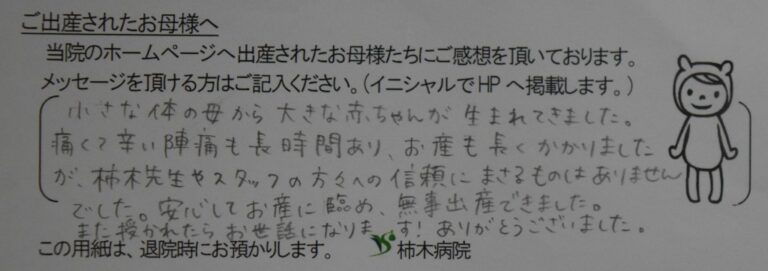 ご出産されたお母様へ
当院のホームページへ出産されたお母様たちにご感想を頂いております。
メッセージを頂ける方はご記入ください。(イニシャルでHPへ掲載します。)
小さな体の母から大きな赤ちゃんが生まれてきました。
痛くて辛い陣痛も長時間あり、お産も長くかかりました
が、柿木先生やスタッフの方々への信頼にまさるものはありません
でした。安心してお産に臨め、無事出産できました。
また授かれたらお世話になります!ありがとうございました。
この用紙は、退院時にお預かりします。 柿木病院